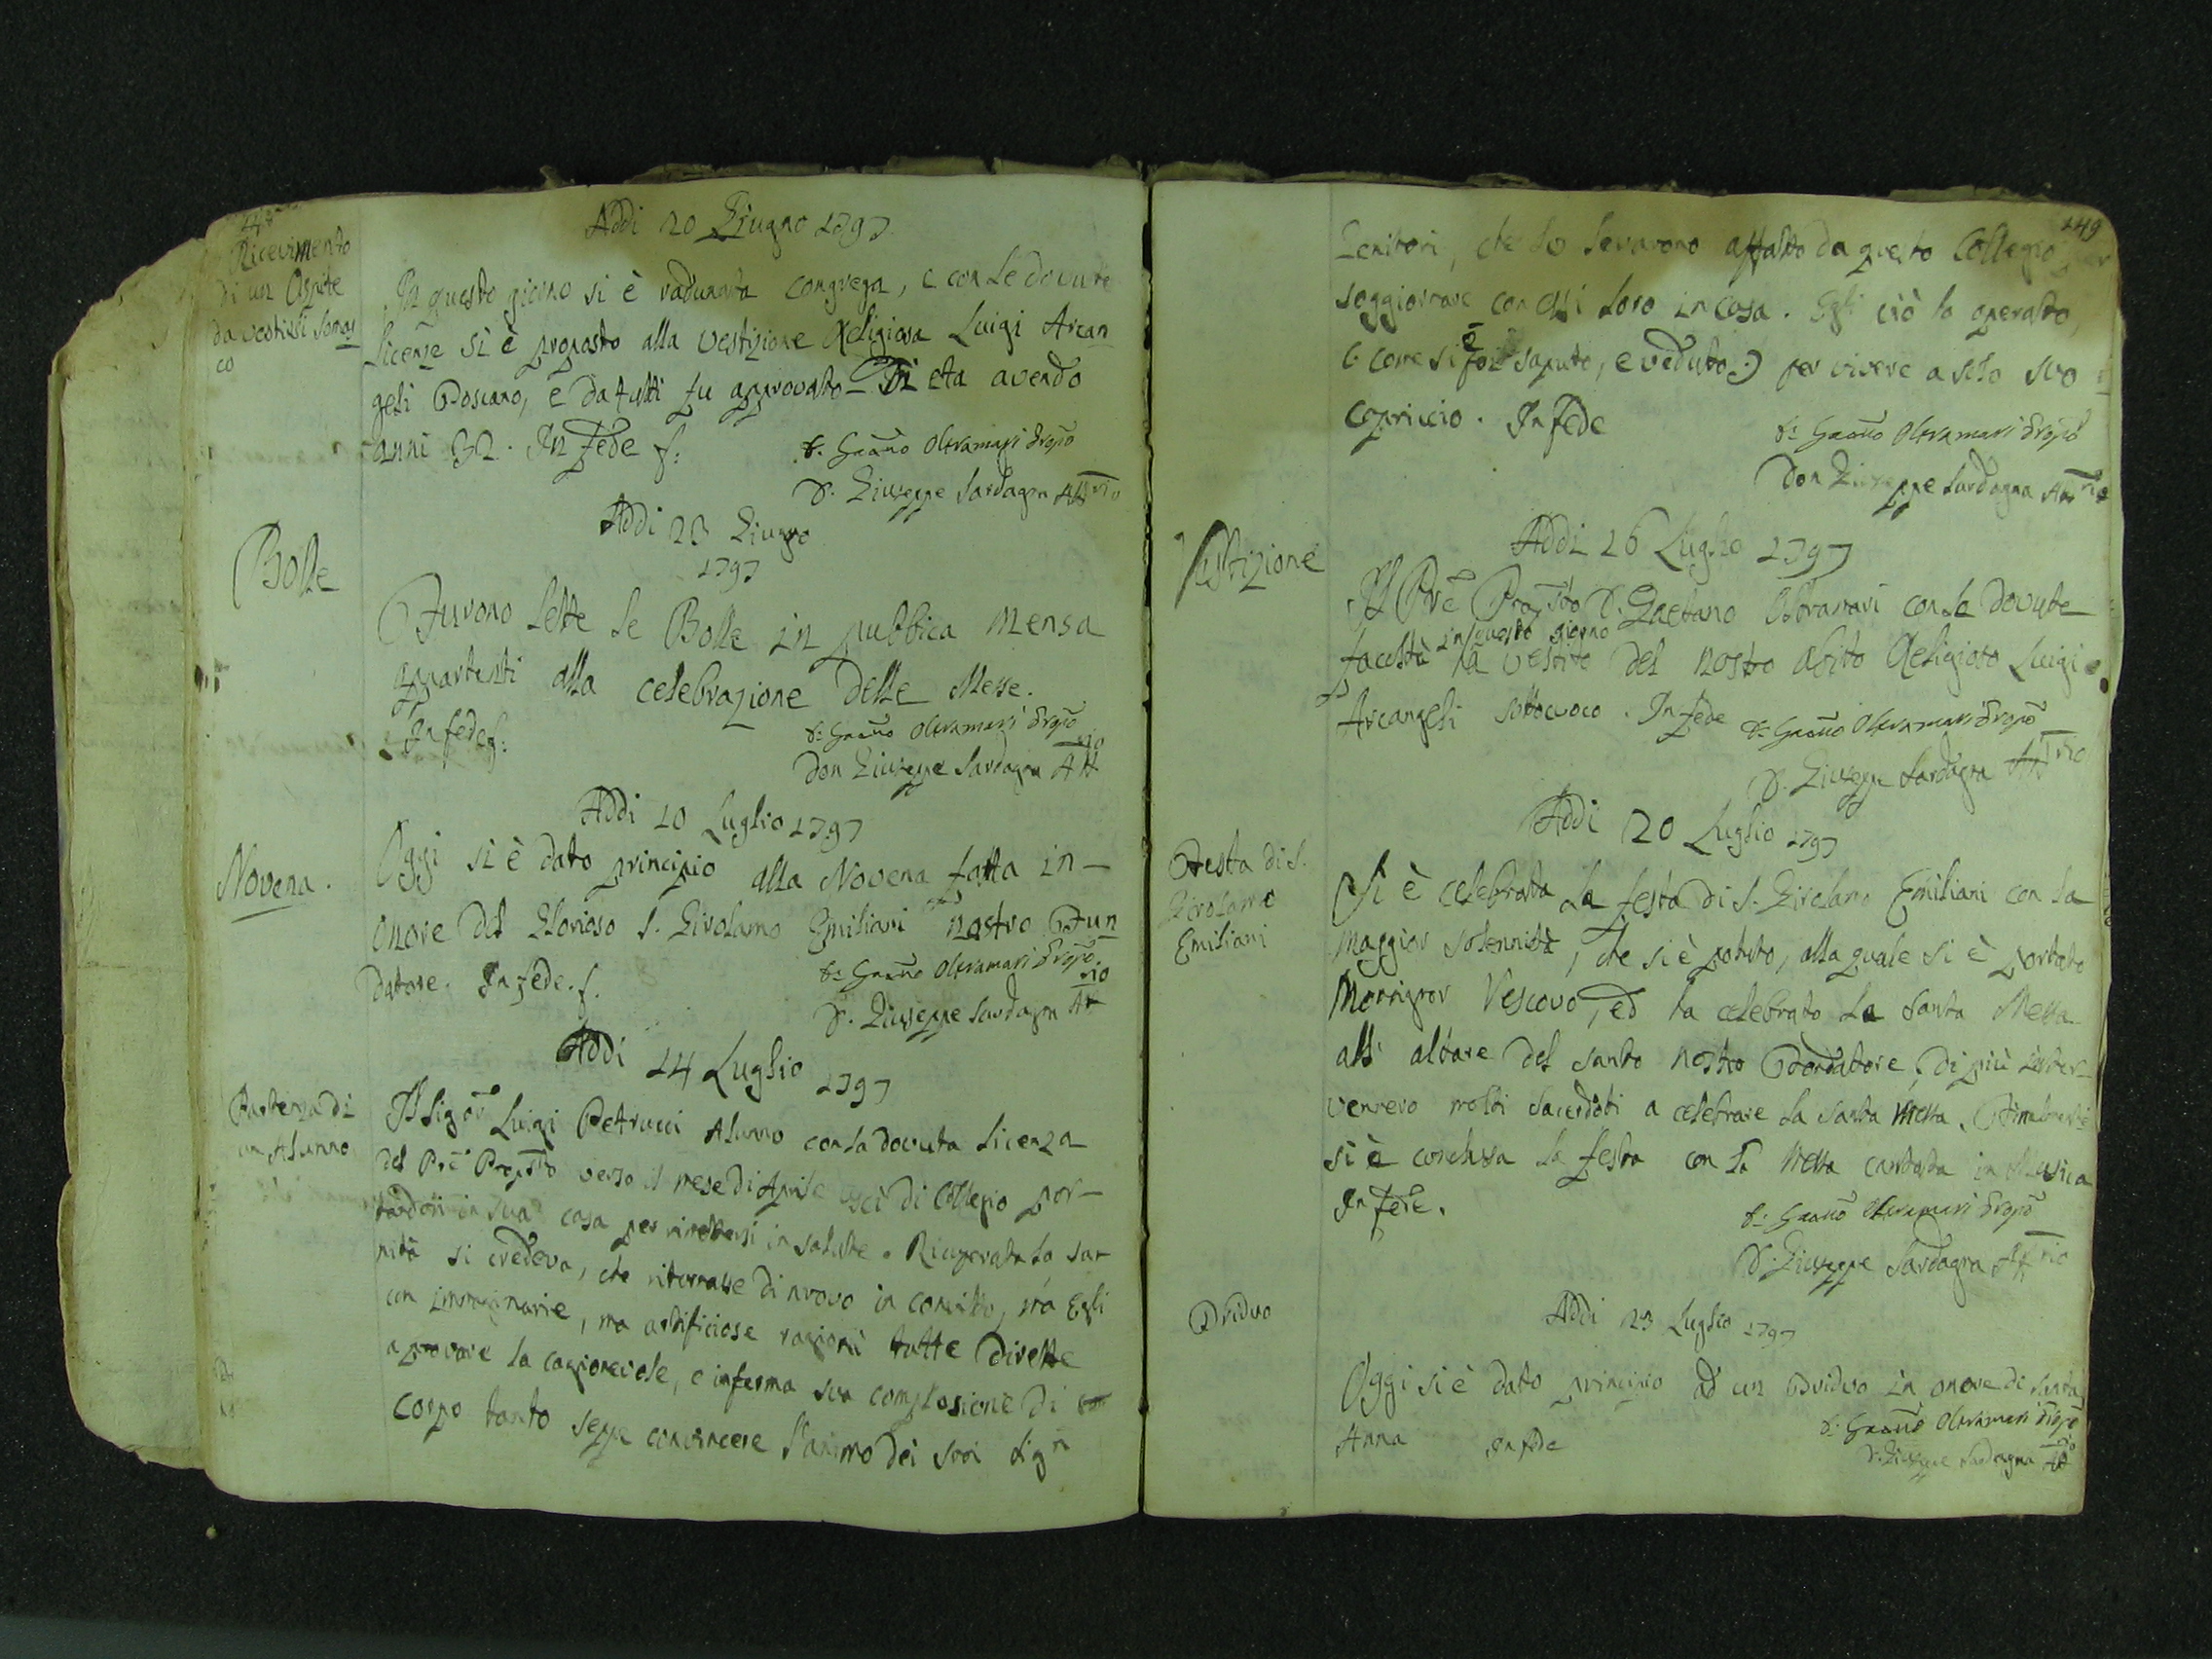 148
Ricevimento
di un Ospite
da vestirsi Somas
co
Addi 20 Giugno 1797
In questo giorno si è radunata congrega, e con le dovute
licenze si è proposto alla vestizione Religiosa Luigi Arcan
geli Toscano, e da tutti fu approvato - Di eta avendo
anni 32. In fede f:
D. Gaãno Oltramari Propõ
D. Giuseppe Sardagna Attrio
Bolle
Addi 23 Giugno
1797
Furono lette le Bolle in pubbica mensa
appartenti alla celebrazione delle Messe.
In fede f:
D: Gaãno Oltramari Propõ
Don Giuseppe Sardagna Attrio
Novena.
Addi 10 Luglio 1797
Oggi si è dato principio alla Novena fatta in-
onore del Glorioso S. Girolamo Emiliani nostro Fun
datore. In fede. f.
D: Gaãno Oltramari Propõ
D. Giuseppe Sardagna Attrio
Partenza di
un Alunno
Addi 14 Luglio 1797
Il Sigor Luigi Petrucci Alunno con la dovuta licenza
del Prẽ Propsto verso il mese di Aprile uscì di Collegio por-
tandosi in sua casa per rimettersi in salute. Ricuperata la sa
nità si credeva, che ritornasse di nuovo in convitto, ma Egli
con immaginarie, ma artificiose ragioni tutte dirette
a provare la cagionevole, e inferma sua complesione di
corpo tanto seppe convincere l'animo dei suoi Sigri
149
Genitori, che lo levarono affatto da questo Collegio per
soggiornare con essi loro in casa. Egli ciò ha operato,
(: come si è poi saputo, e veduto :) per vivere a solo suo
capriccio. In fede
D: Gaãno Oltramari Propõ
Don Giuseppe Sardagna Attrio
Vestizione
Addi 16 Luglio 1797
Il Prẽ Propsto D. Gaetano Oltramari con le dovute
facoltà in questo giorno ha vestito del nostro abito Religioso Luigi
Arcangeli sottocuoco. In fede
D: Gaãno Oltramari Propõ
D. Giuseppe Sardagna Attrio
Festa di S.
Girolamo
Emiliani
Addi 20 Luglio 1797
Si è celebrata la festa di S. Girolamo Emiliani con la
maggior solennità, che si è potuto, alla quale si è portato
Monsignor Vescovo, ed ha celebrato la Santa Messa
all' altare del santo nostro Fondatore, di più inter-
vennero molti sacerdoti a celebrare la santa Messa. Finalmente
si è conclusa la festa con la Messa cantata in Musica
In fede.
D: Gaãno Oltramari Propõ
D. Giuseppe Sardagna Attrio
Triduo
Addi 23 Luglio 1797
Oggi si è dato principio ad un Triduo in onore di Santa
Anna in fede
D: Gaãno Oltramari Propõ
D. Giuseppe Sardagna Attrio